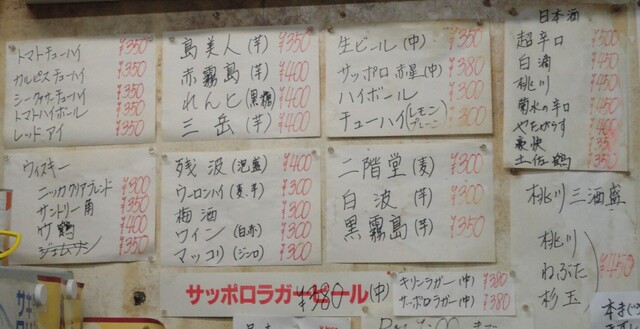 トマトチューハイ ¥350
カルピスチューハイ ¥350
シークヮサーチューハイ ¥350
トマトハイボール ¥350
レッドアイ ¥350
島美人(芋) ¥350
赤霧島(芋) ¥400
れんと(黒糖) ¥400
三岳(芋) ¥400
生ビール(中) ¥350
サッポロ赤星(中) ¥380
ハイボール ¥300
チューハイ(レモン プレーン) ¥300
日本酒
超辛口 ¥500
白滴 ¥450
桃川 ¥450
菊水の辛口 ¥450
やたがらす ¥400
豪快 ¥350
土佐鶴 ¥350
ウィスキー
ニッカクリアブレンド ¥300
サントリー角 ¥350
竹鶴 ¥400
ジェムソン ¥350
残波(泡盛) ¥400
ウーロンハイ(麦、芋) ¥300
梅酒 ¥300
ワイン(白赤) ¥300
マッコリ(ジンロ) ¥300
二階堂(麦) ¥300
白波(芋) ¥300
黒霧島(芋) ¥350
桃川三酒盛
桃川
ねぶた
杉玉
¥450
サッポロラガービール(中)
¥380
キリンラガー(中) ¥380
サッポロラガー(中) ¥380